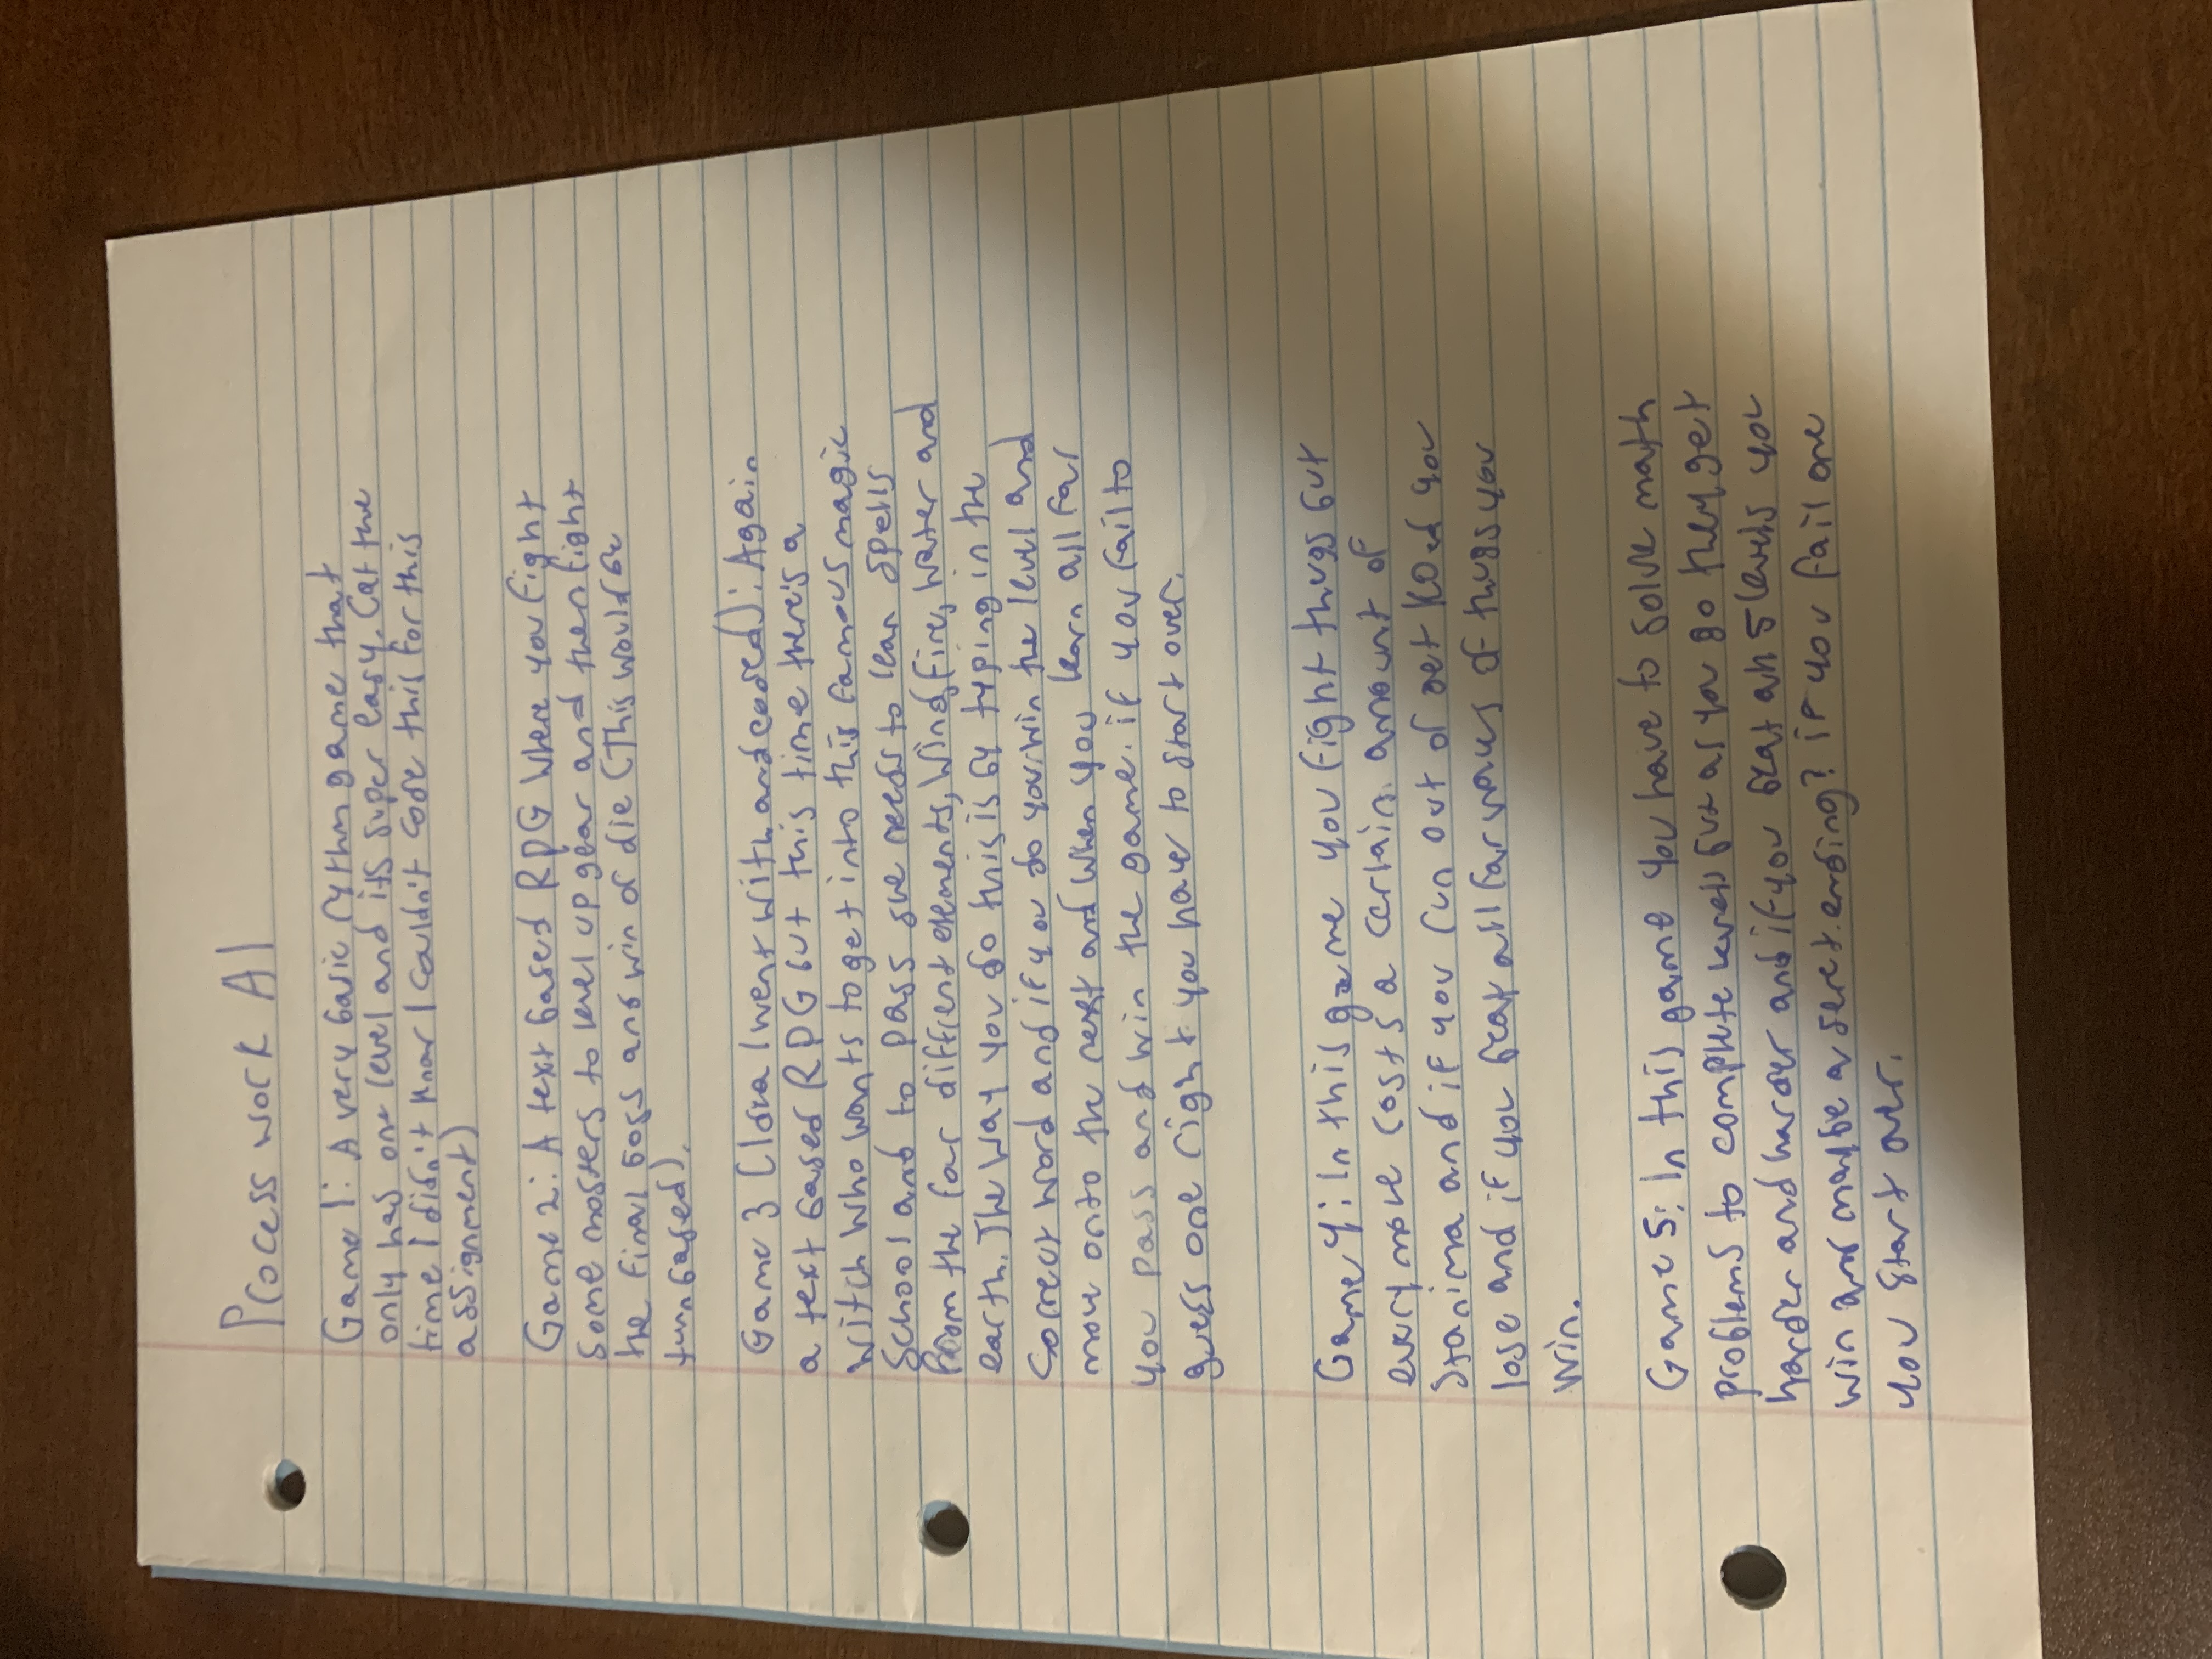 Process work A1
Game 1: A very basic rythm game that
only has one level and its super easy. (at the
time I didn't know I couldn't code this for this
assignment)
Game 2: A text based RPG where you fight
some mosters to level up gear and then fight
the final boss and win or die (This would be
turn based).
Game 3 (Idea I went with and coded): Again
a text based RPG but this time there's a
witch who wants to get into this famous magic
school and to pass she needs to lean spells
from the four diffrent elements, Wind, fire, water and
earth. The way you do this is by typing in the
correct word and if you do you win the level and
move onto the next and when you learn all four
you pass and win the game. if you fail to
guess one right you have to start over.
Game 4: In this game you fight thugs but
every move costs a certain amount of
Stanima and if you run out or get KOed you
lose and if you beat all four waves of thugs you
win.
Game 5: In this game you have to solve math
problems to complete levels but as you go they get
harder and harder and if you beat all 5 levels you
win and maybe a seret ending? if you fail one
you start over.